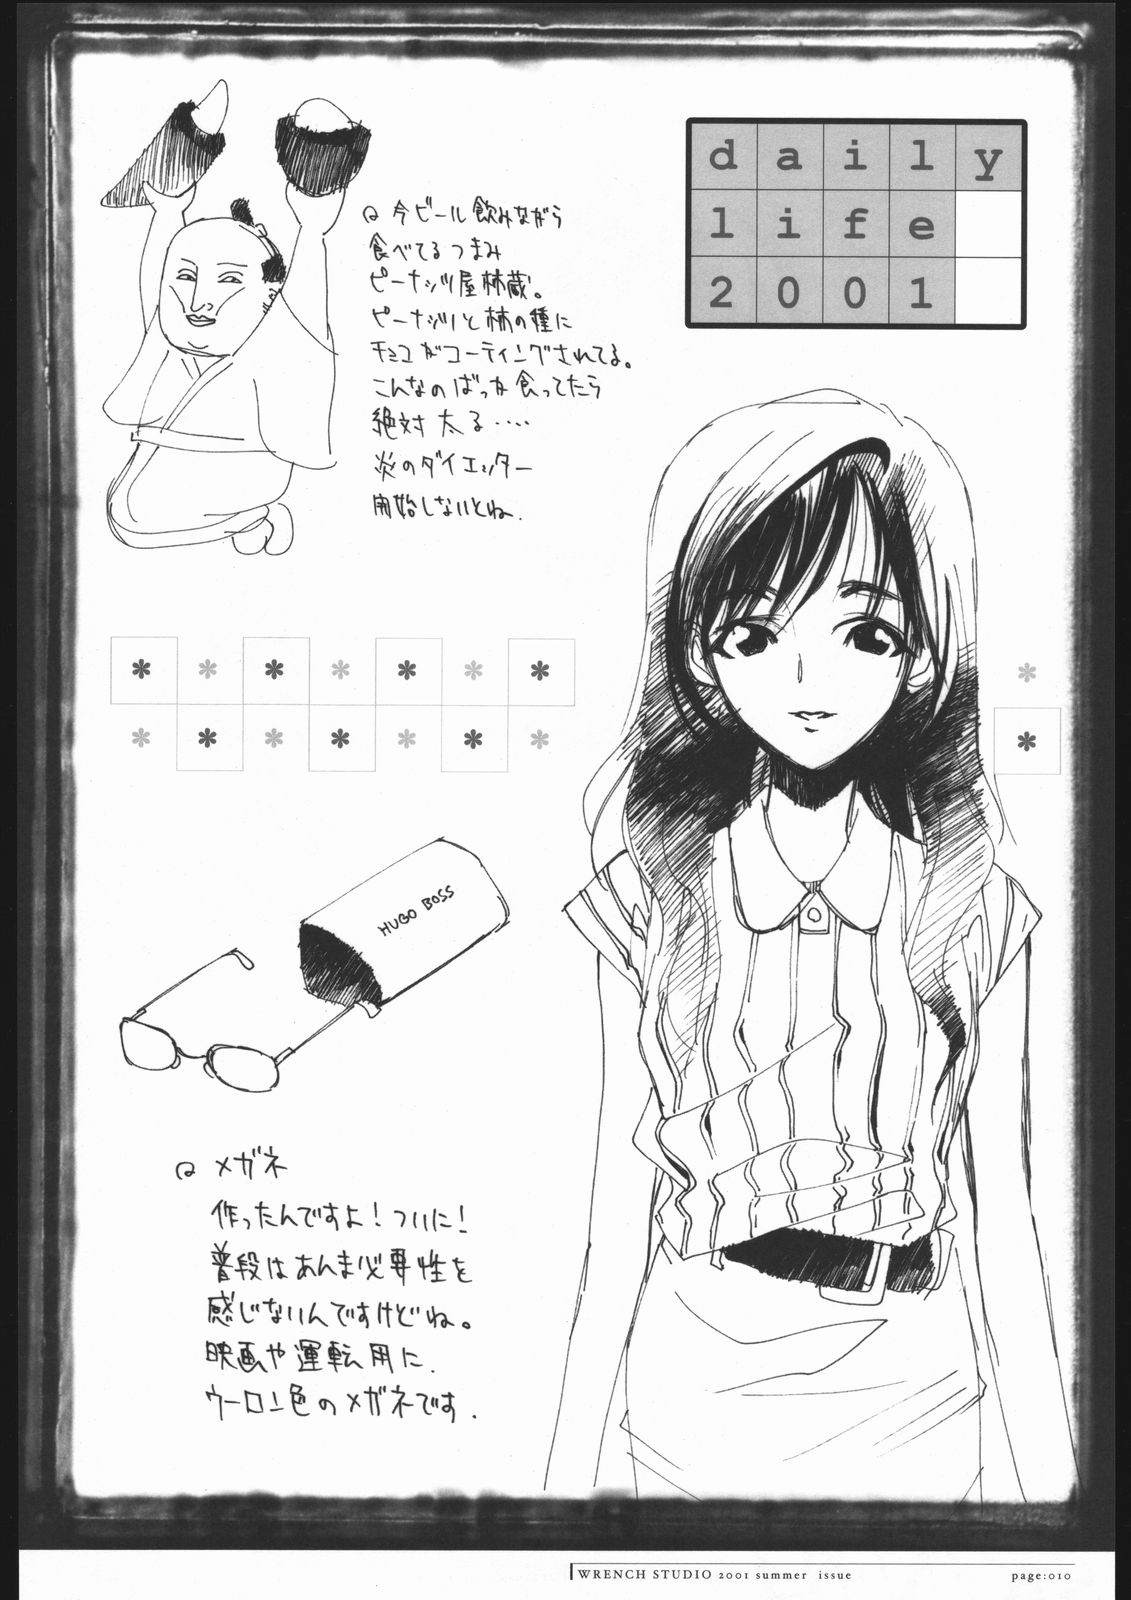 daily
life
2001
今ビール飲みながら
食べてるつまみ
ピーナッツ屋林蔵。
ピーナッツと柿の種に
チョコがコーティングされてる。
こんなのばっか食ってたら
絶対太る‥‥
炎のダイエッター
開始しないとね.
HUGO BOSS
メガネ
作ったんですよ!ついに!
普段はあんま必要性を
感じないんですけどね。
映画や運転用に.
ウーロン色のメガネです.
WRENCH STUDIO 2001 summer issue
page:010